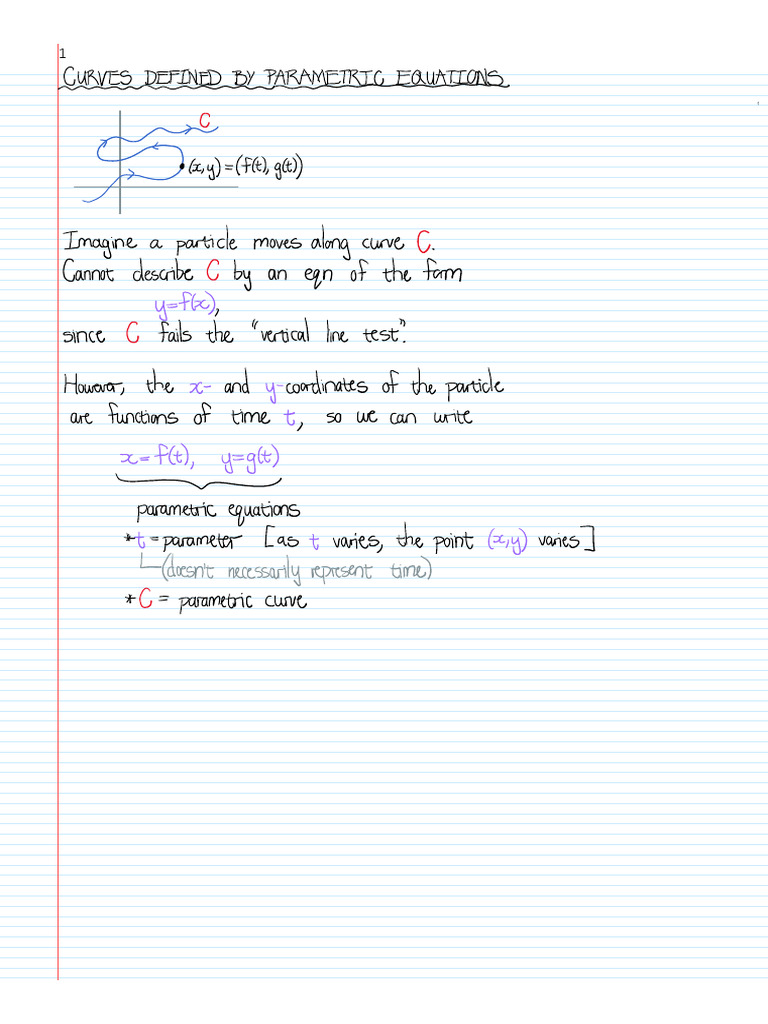 1
CURVES DEFINED BY PARAMETRIC EQUATIONS
C
(x,y)=(f(t), g(t))
Imagine a particle moves along curve C.
Cannot describe C by an eqn of the form
y=f(x),
since C fails the "vertical line test".
However, the x- and y-coordinates of the particle
are functions of time t, so we can write
x=f(t), y=g(t)
parametric equations
*t=parameter [as t varies, the point (x,y) varies]
(doesn't necessarily represent time)
*C = parametric curve